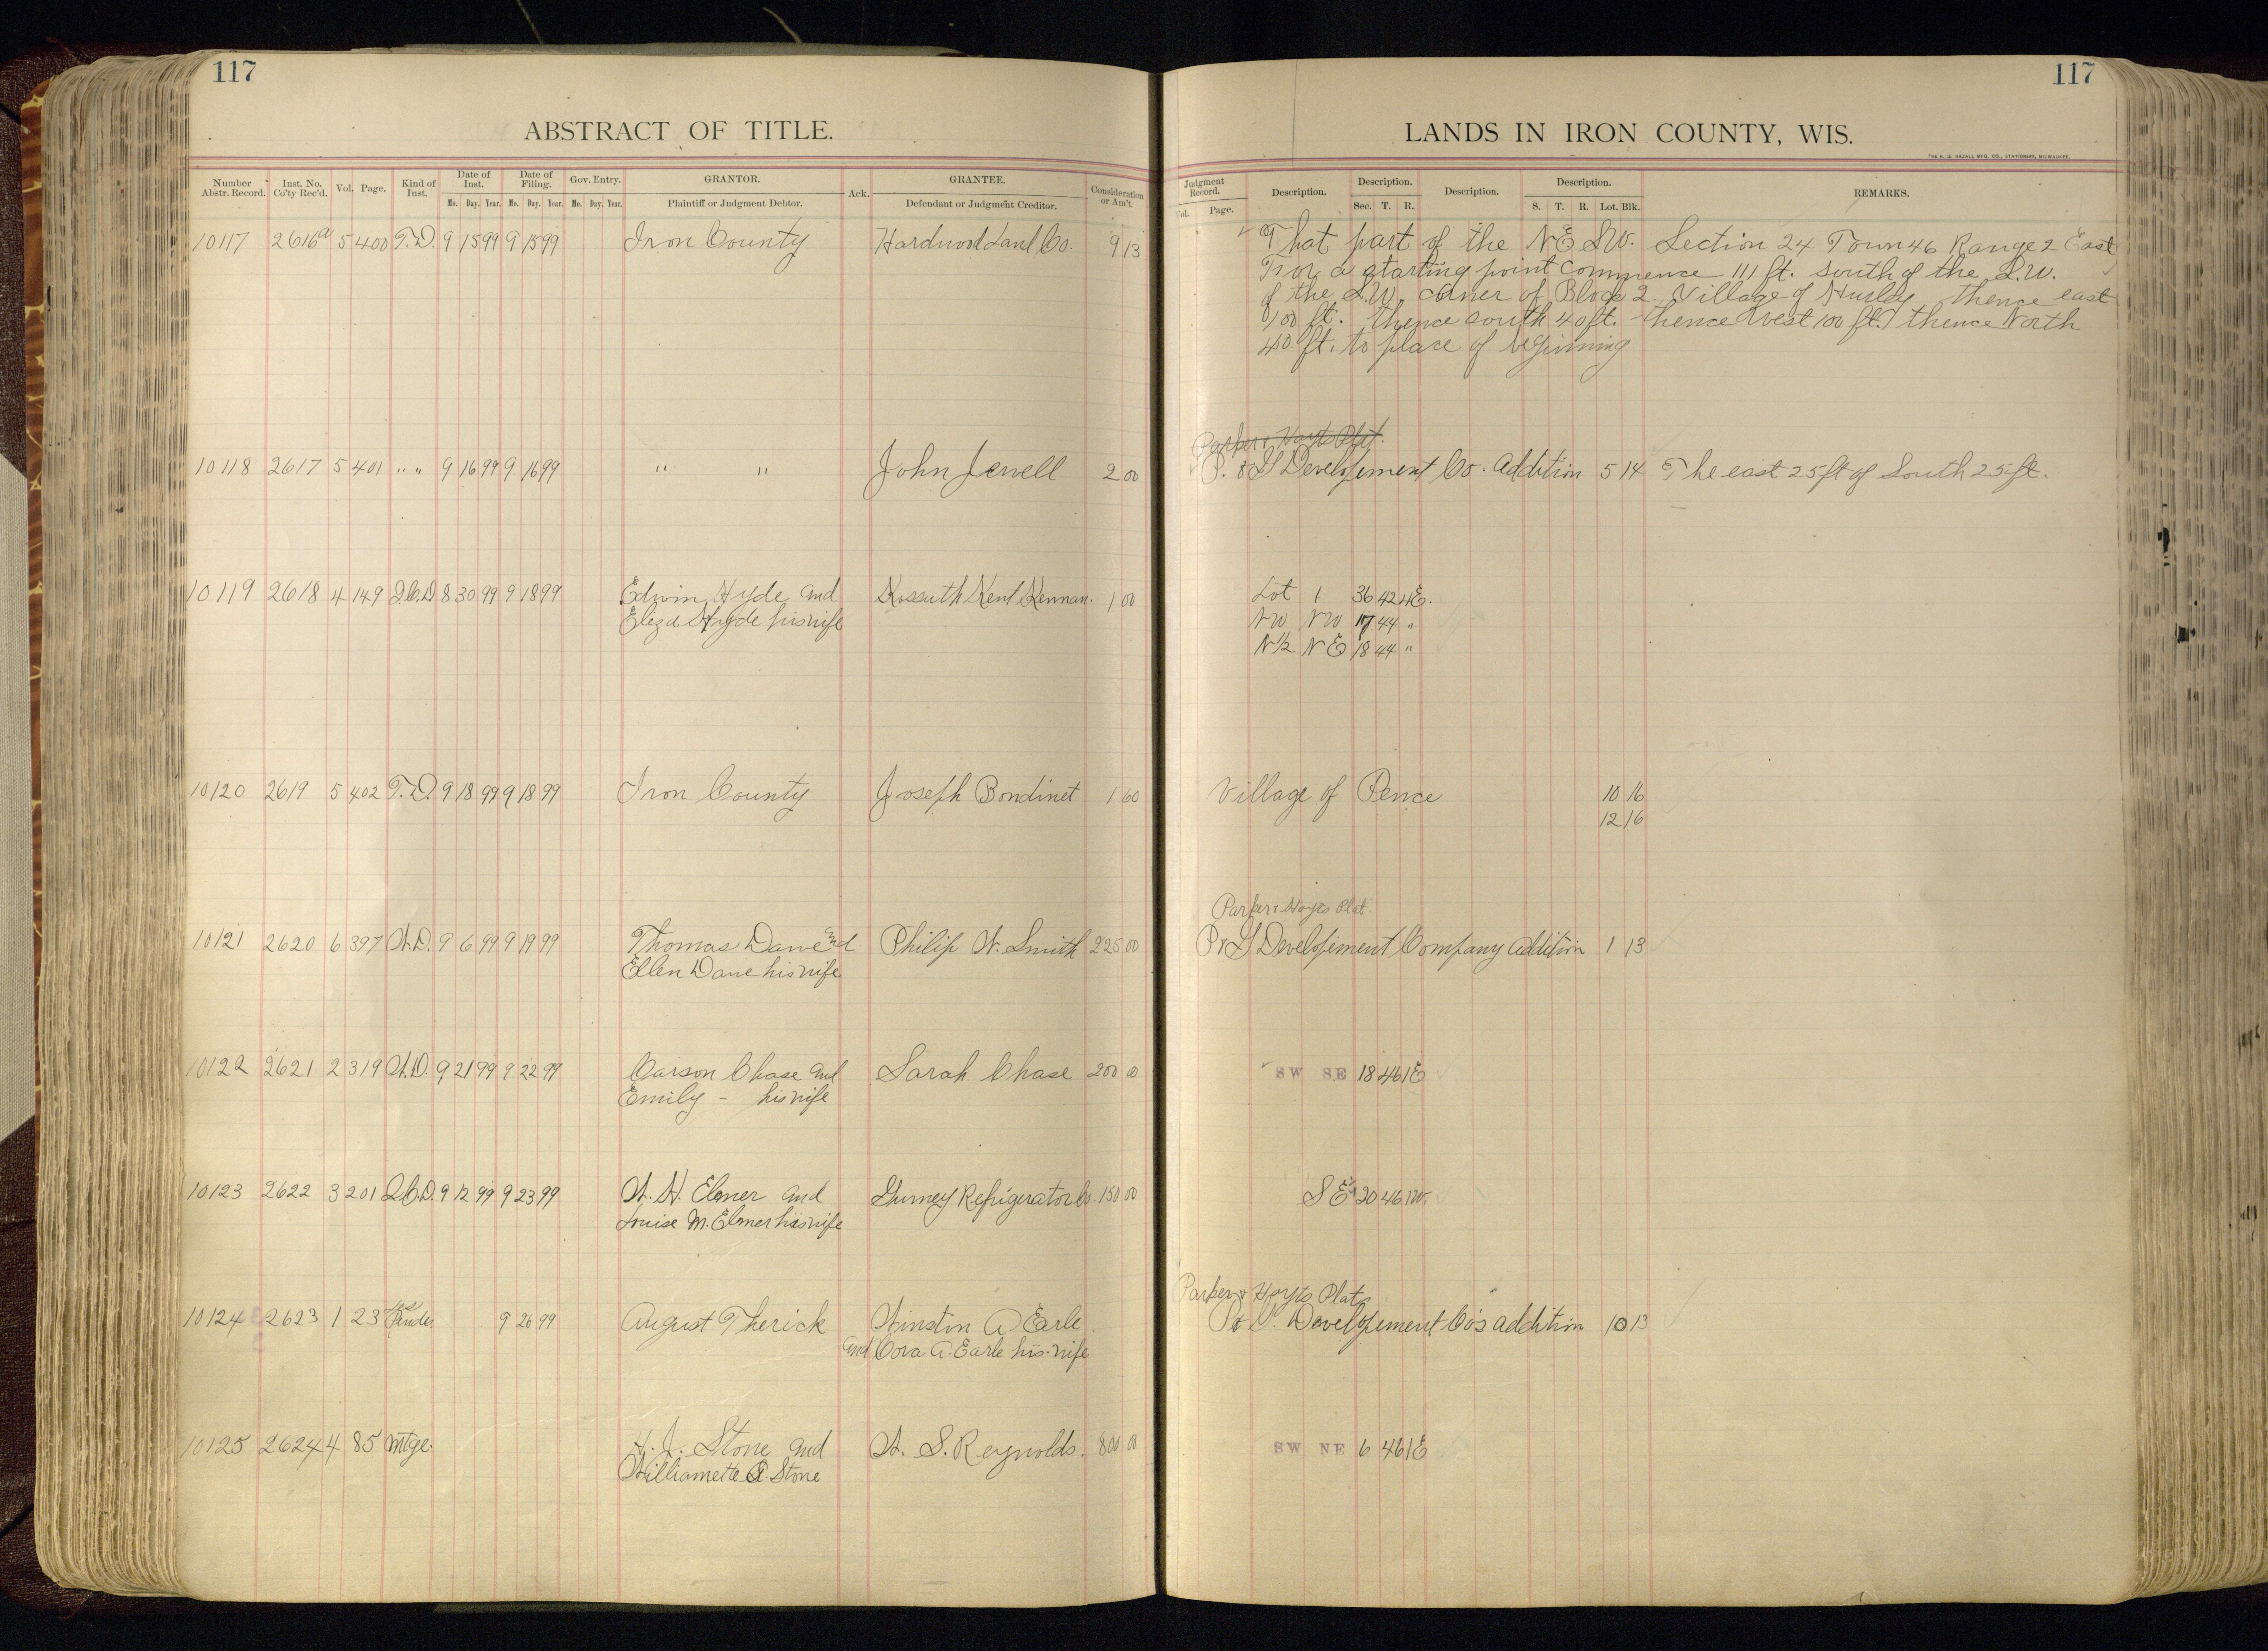 117
117
ABSTRACT OF TITLE.
LANDS IN IRON COUNTY, WIS.
THE H. G. RAZALL MFG. CO., STATIONERS, MILWAUKEE.
Number Abstr. Record. Inst. No. Co'ty Rec'd. Vol. Page. Kind of Inst. Date of Inst. Mo. Day. Year. Date of Filing. Mo. Day. Year. Gov. Entry. Mo. Day. Year. GRANTOR. Plaintiff or Judgment Debtor. Ack. GRANTEE. Defendant or Judgment Creditor. Consideration or Am't.
Judgment Record. Vol. Page. Description. Description. Sec. T. R. Description. Description. S. T. R. Lot. Blk. REMARKS.
10117 2616a 5 400 T.D. 9 15 99 9 15 99 Iron County Hardwood Land Co. 9 13 That part of the NE SW. Section 24 Town 46 Range 2 East
For a starting point commence 111 ft. south of the S.W.
of the S.W. corner of Block 2 Village of Hurley thence east
100 ft. thence south 40 ft. thence West 100 ft. thence North
40 ft. to place of beginning
Parker & Hoyts Plat.
10118 2617 5 401 " " 9 16 99 9 16 99 " " John Jewell 2 00 P. & G Development Co. Addition 5 14 The east 25 ft of South 25 ft.
10119 2618 4 149 Q.C.D 8 30 99 9 18 99 Edwin Hyde and Kossuth Kent Kennan. 1 00 Lot 1 36 42 4E.
Eliza Hyde his wife NW NW 17 44 "
N½ NE 18 44 "
10120 2619 5 402 T.D. 9 18 99 9 18 99 Iron County Joseph Bondinet 1 60 Village of Pence 10 16
12 16
Parker & Hoyts Plat
10121 2620 6 397 W.D. 9 6 99 9 19 99 Thomas Dane and Philip N. Smith 225 00 P & G Development Company Addition 1 13
Ellen Dane his wife
10122 2621 2 319 W.D. 9 21 99 9 22 99 Carson Chase and Sarah Chase 200 00 SW SE 18 46 1E
Emily - his wife
10123 2622 3 201 Q.C.D. 9 12 99 9 23 99 W. H. Elmer and Gurney Refrigerator Co. 150 00 SE 20 46 1W.
Louise M. Elmer his wife
Parker & Hoyts Plat
10124 2623 1 23 Les Pendes 9 26 99 August Therick Winston A Earle P & G. Development Co's addition 10 13
and Cora A. Earle his wife
10125 2624 4 85 Mtge. H. J. Stone and W. S. Reynolds. 800 00 SW NE 6 46 1E
Williamette Stone